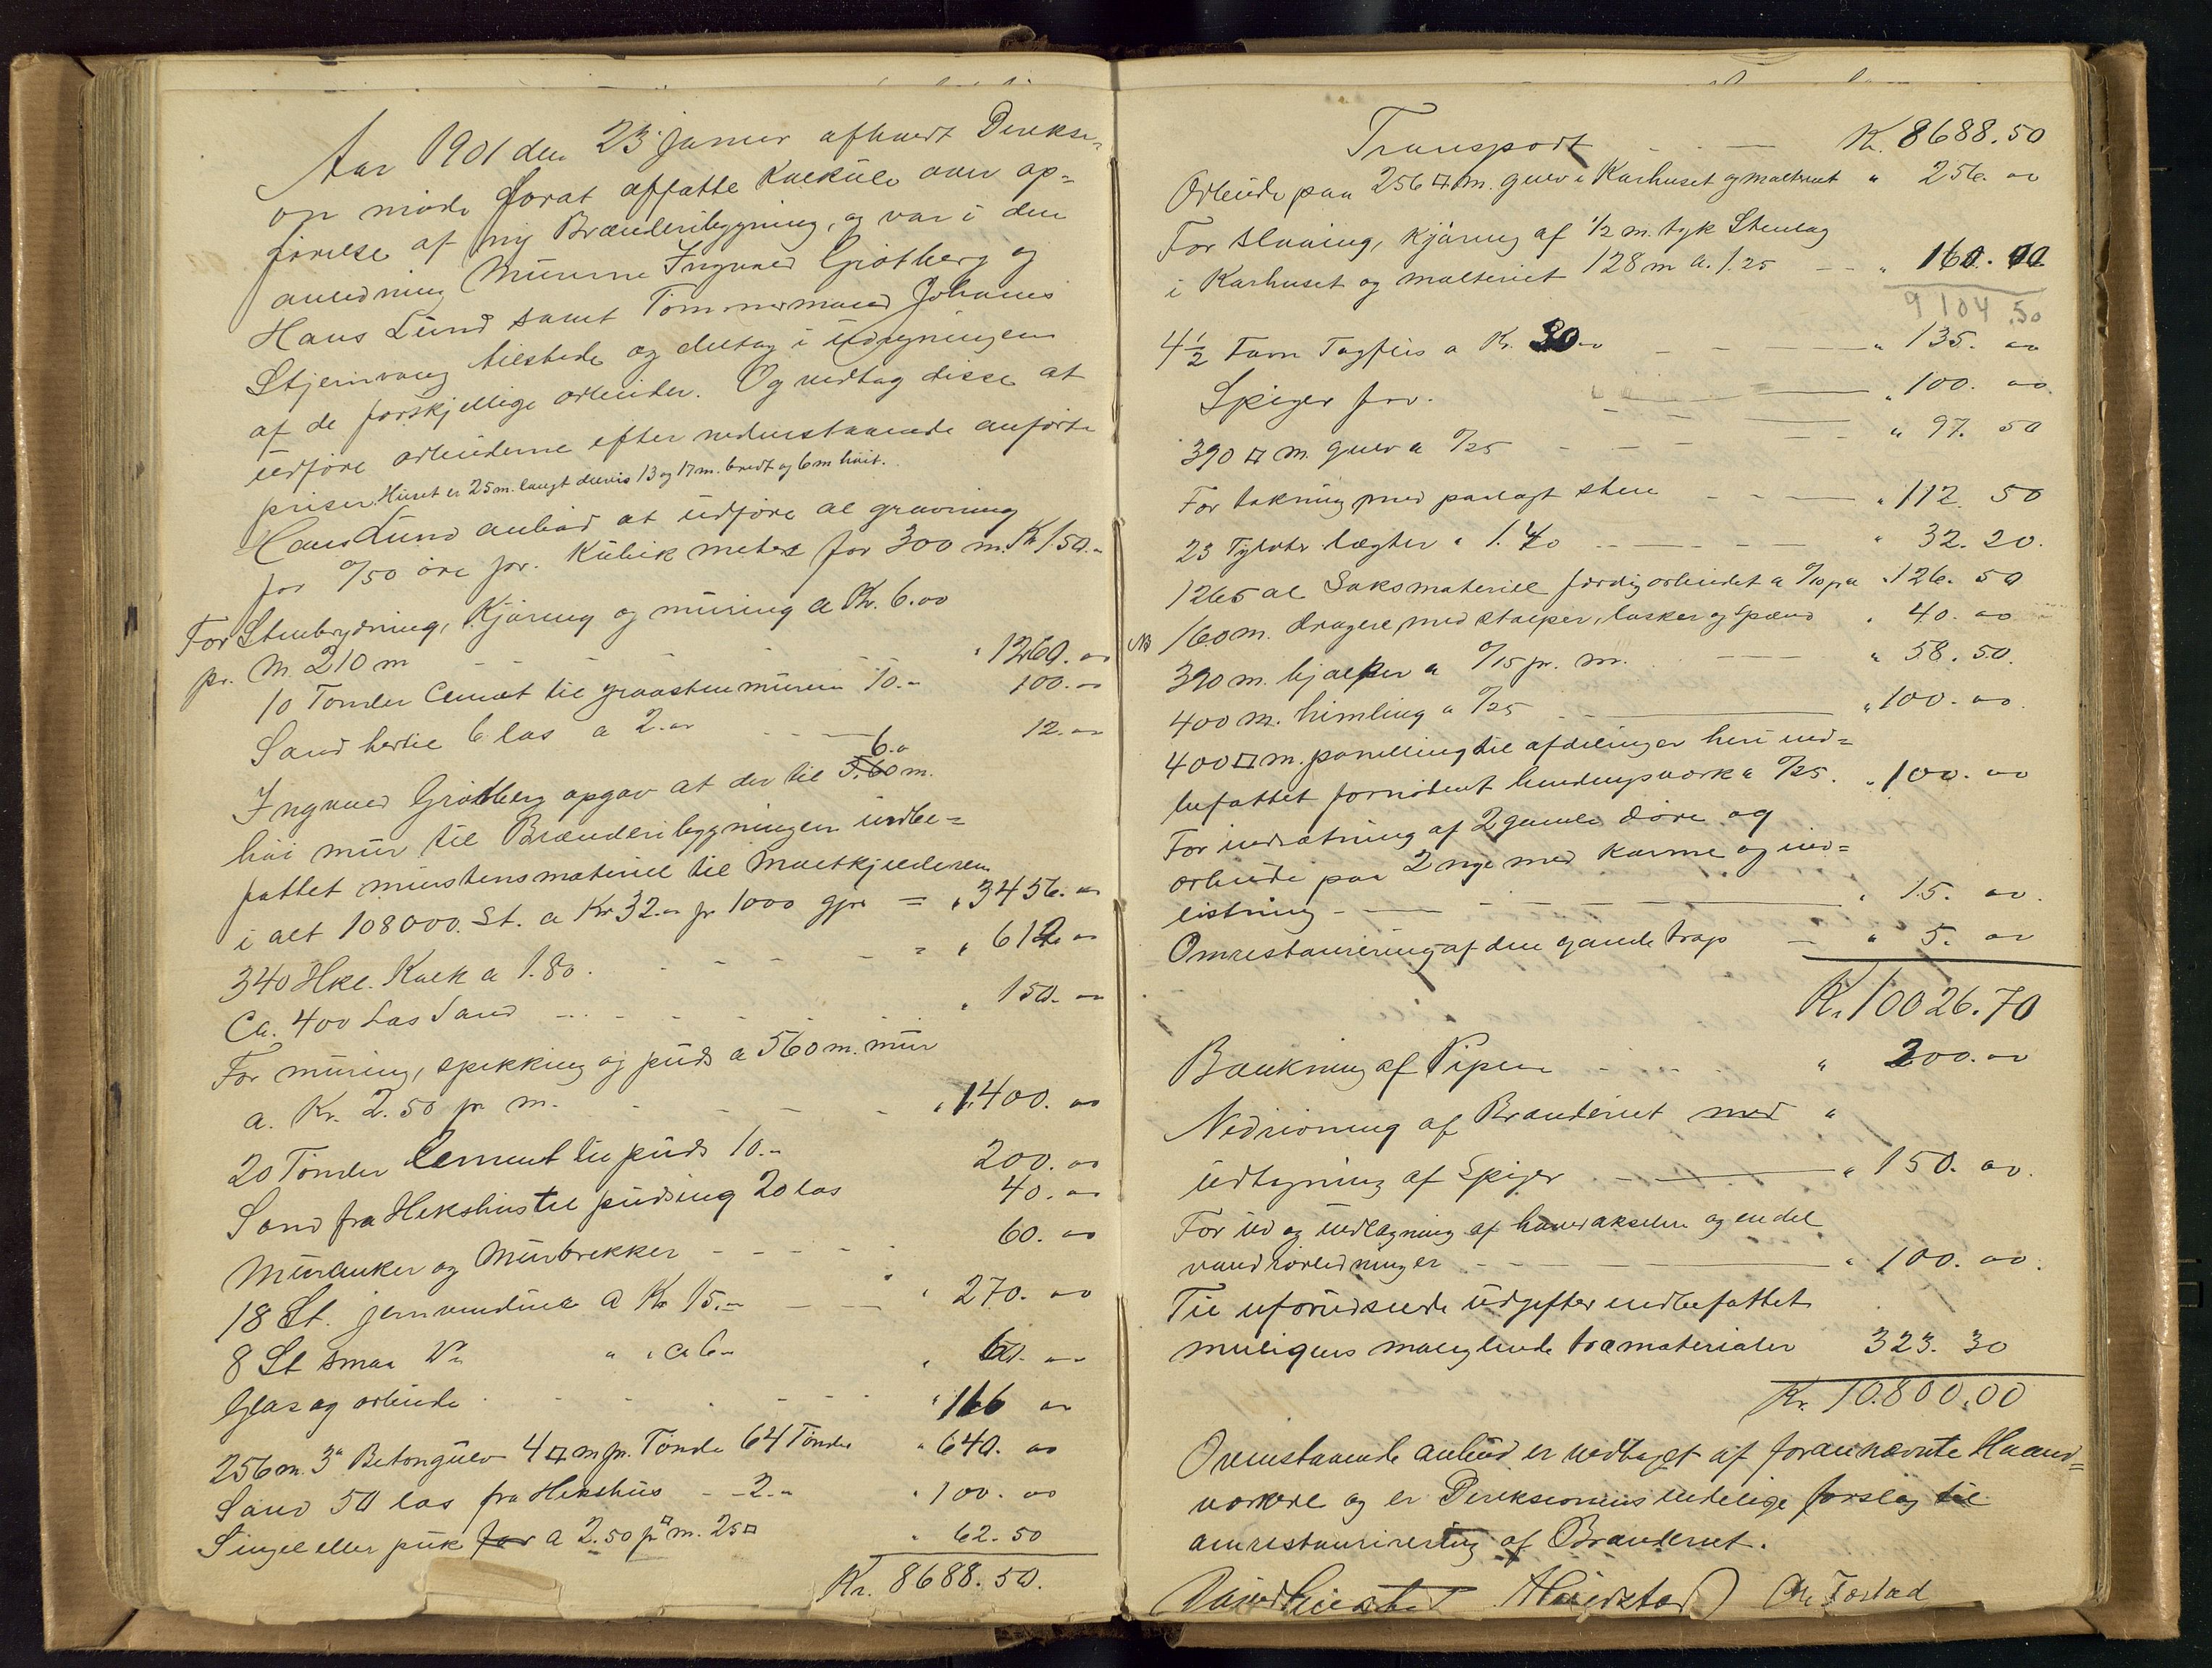 Aar 1901 den 23 januar afholdt Direksi-
on møde forat affatte Kalkule over op=
førelse af ny Brænderibygning, og var i den
anledning Murerne Ingvald Grøtberg og
Hans Lund samt Tømmermand Johannes
Stjernvang tilstede og deltog i Udregningen
af de forskjellige arbeider. Og vedtog disse at
udføre arbeiderne efter nedenstaaende anførte
priser. Huset er 25 m. langt delvis 13 og 17 m. bredt og 6 m høit.
Hans Lund anbød at udføre al gravning
for 0/50 øre pr. Kubik meter for 300 m. Kr 150.-
For Stenbrydning, Kjøring og muring a Kr. 6.00
pr. M. 210 m - - - " 1260. 00
10 Tønder Cement til graastenmuren 10.- 100. 00
Sand hertil 6 las a 2.00 - - - 12. 00
6.0
Ingvald Grøtberg opgav at der til 3.60 m.
høi mur til Brænderibygningen indbe=
fattet murstensmateriel til Maltkjelderen
i alt 108000. St. a Kr 32.00 pr 1000 gjør = " 3456. 00
340 Hkl. Kalk a 1.80. - - - = " 612. 00
Ca. 400 Las Sand - - - " 150. 00
For muring, spekking og puds a 560 m. mur
a. Kr. 2.50 pr m. - - - " 1400. 00
20 Tønder Cement til puds 10.- 200. 00
Sand fra Hekshus til pudsing 20 las 40. 00
Muranker og Murbrekker - - - 60. 00
18 St. jernvinduer a Kr 15.- - - " 270. 00
8 St smaa Do " " a 6- " 60. 00
Glas og arbeide - - - " 166 00
256 m. 3" Betongulv 4 □ m pr. Tønde 64 Tønder " 640. 00
Sand 50 las fra Hekshus - - 2.- " 100. 00
Singel eller puk for a 2.50 pr □ m. 25 □ " 62. 50
Kr. 8688. 50.
Transport - - - Kr. 8688.50
Arbeide paa 256 □ m. gulv i Karhuset og malteriet " 256. 00
For slaaing, kjøring af 1/2 m. tyk Stenlag
i Karhuset og malteriet 128 m a. 1.25 - - " 160. 00
9104.50
4 1/2 Favn Tagflis a Kr. 30 00 - - - " 135. 00
Spiger for. - - - " 100. 00
390 □ m. gulv a 0/25 - - - " 97. 50
For tækning med paalagt sten - - - " 112. 50
23 Tylvter lægter a 1.40 - - - " 32. 20.
1265 al Saksmateriel færdig arbeidet a 0/10 pr a " 126. 50
NB 160 m. dragere med stolper, lasker og spænd " 40. 00
390 m. bjælker a 0/15 pr. m. - - " 58. 50.
400 m. himling a 0/25 - - " 100. 00.
400 □ m. panelling til afdelinger heri ind=
befattet fornødent bindingsværk a 0/25. " 100. 00
For indsætning af 2 gamle døre og
arbeide paa 2 nye med karme og ind=
listning - - - " 15. 00.
Omrestaurering af den gamle trap - " 5. 00
Kr. 10026.70
Bankning af Pipen - - " 200. 00
Nedrivning af Brænderiet med "
udtagning af Spiger - - " 150. 00.
For ud og indlægning af hovedakselen og endel
vandrørledninger - - - " 100. 00.
Til uforudseede udgifter indbefattet
muligens manglende træmaterialer 323. 30
Kr. 10.800.00
Ovenstaaende anbud er vedtaget af forannævnte Haand=
værkere og er Direksionens endelige forslag til
omrestaurirering af Brænderiet.
A Huidstad Chr Fostad